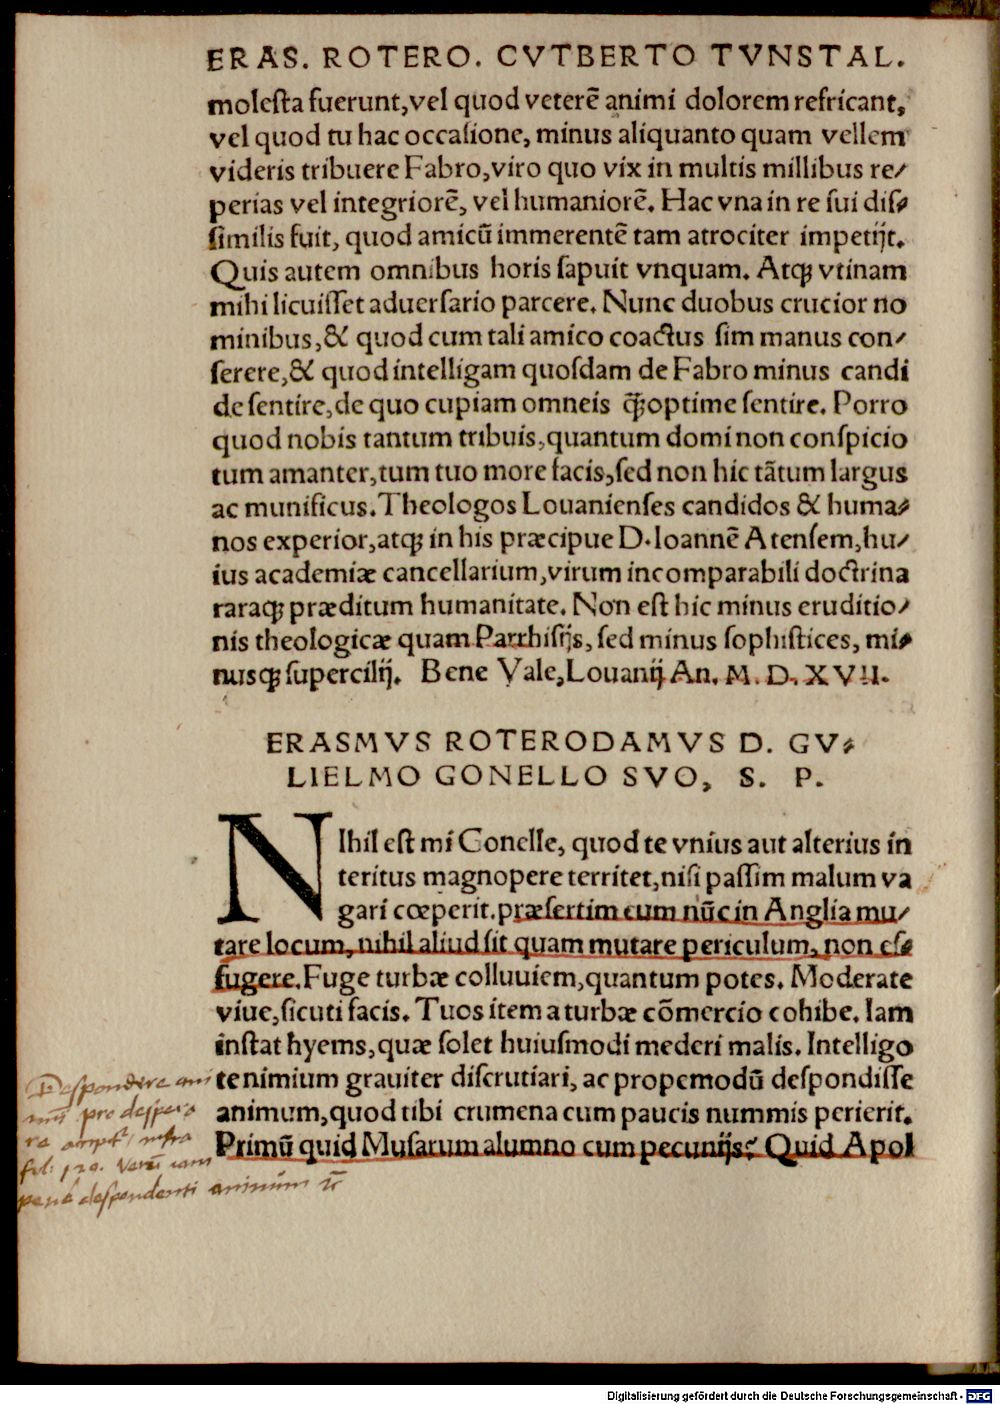 ERAS. ROTERO. CVTBERTO TVNSTAL.
molesta fuerunt, vel quod veterē animi dolorem refricant,
vel quod tu hac occasione, minus aliquanto quam vellem
videris tribuere Fabro, viro quo vix in multis millibus re⸗
perias vel integriorē, vel humaniorē. Hac vna in re sui dis⸗
similis fuit, quod amicū immerentē tam atrociter impetijt.
Quis autem omnibus horis sapuit vnquam. Atqꝫ vtinam
mihi licuisset aduersario parcere. Nunc duobus crucior no
minibus, & quod cum tali amico coactus sim manus con⸗
serere, & quod intelligam quosdam de Fabro minus candi
de sentire, de quo cupiam omneis q̄ꝫ optime sentire. Porro
quod nobis tantum tribuis, quantum domi non conspicio
tum amanter, tum tuo more facis, sed non hic tātum largus
ac munificus. Theologos Louanienses candidos & huma⸗
nos experior, atqꝫ in his præcipue D. Ioannē Atensem, hu⸗
ius academiæ cancellarium, virum incomparabili doctrina
raraqꝫ præditum humanitate. Non est hic minus eruditio⸗
nis theologicæ quam Parrhisijs, sed minus sophistices, mi⸗
nusqꝫ supercilij. Bene Vale, Louanij An. M. D. XVII.
ERASMVS ROTERODAMVS D. GV⸗
LIELMO GONELLO SVO, S. P.
NIhil est mi Gonelle, quod te vnius aut alterius in
teritus magnopere territet, nisi passim malum va
gari cœperit. præsertim cum nūc in Anglia mu⸗
tare locum, nihil aliud sit quam mutare periculum, non ef⸗
fugere. Fuge turbæ colluuiem, quantum potes. Moderate
viue, sicuti facis. Tuos item a turbæ cōmercio cohibe. Iam
instat hyems, quæ solet huiusmodi mederi malis. Intelligo
te nimium grauiter discrutiari, ac propemodū despondisse
animum, quod tibi crumena cum paucis nummis perierit.
Primū quid Musarum alumno cum pecunijs? Quid Apol
Despondere ani
mū pro despera
re infra
fol: 129. Verū iam
pene despondenti animum
Digitalisierung gefördert durch die Deutsche Forschungsgemeinschaft - DFG